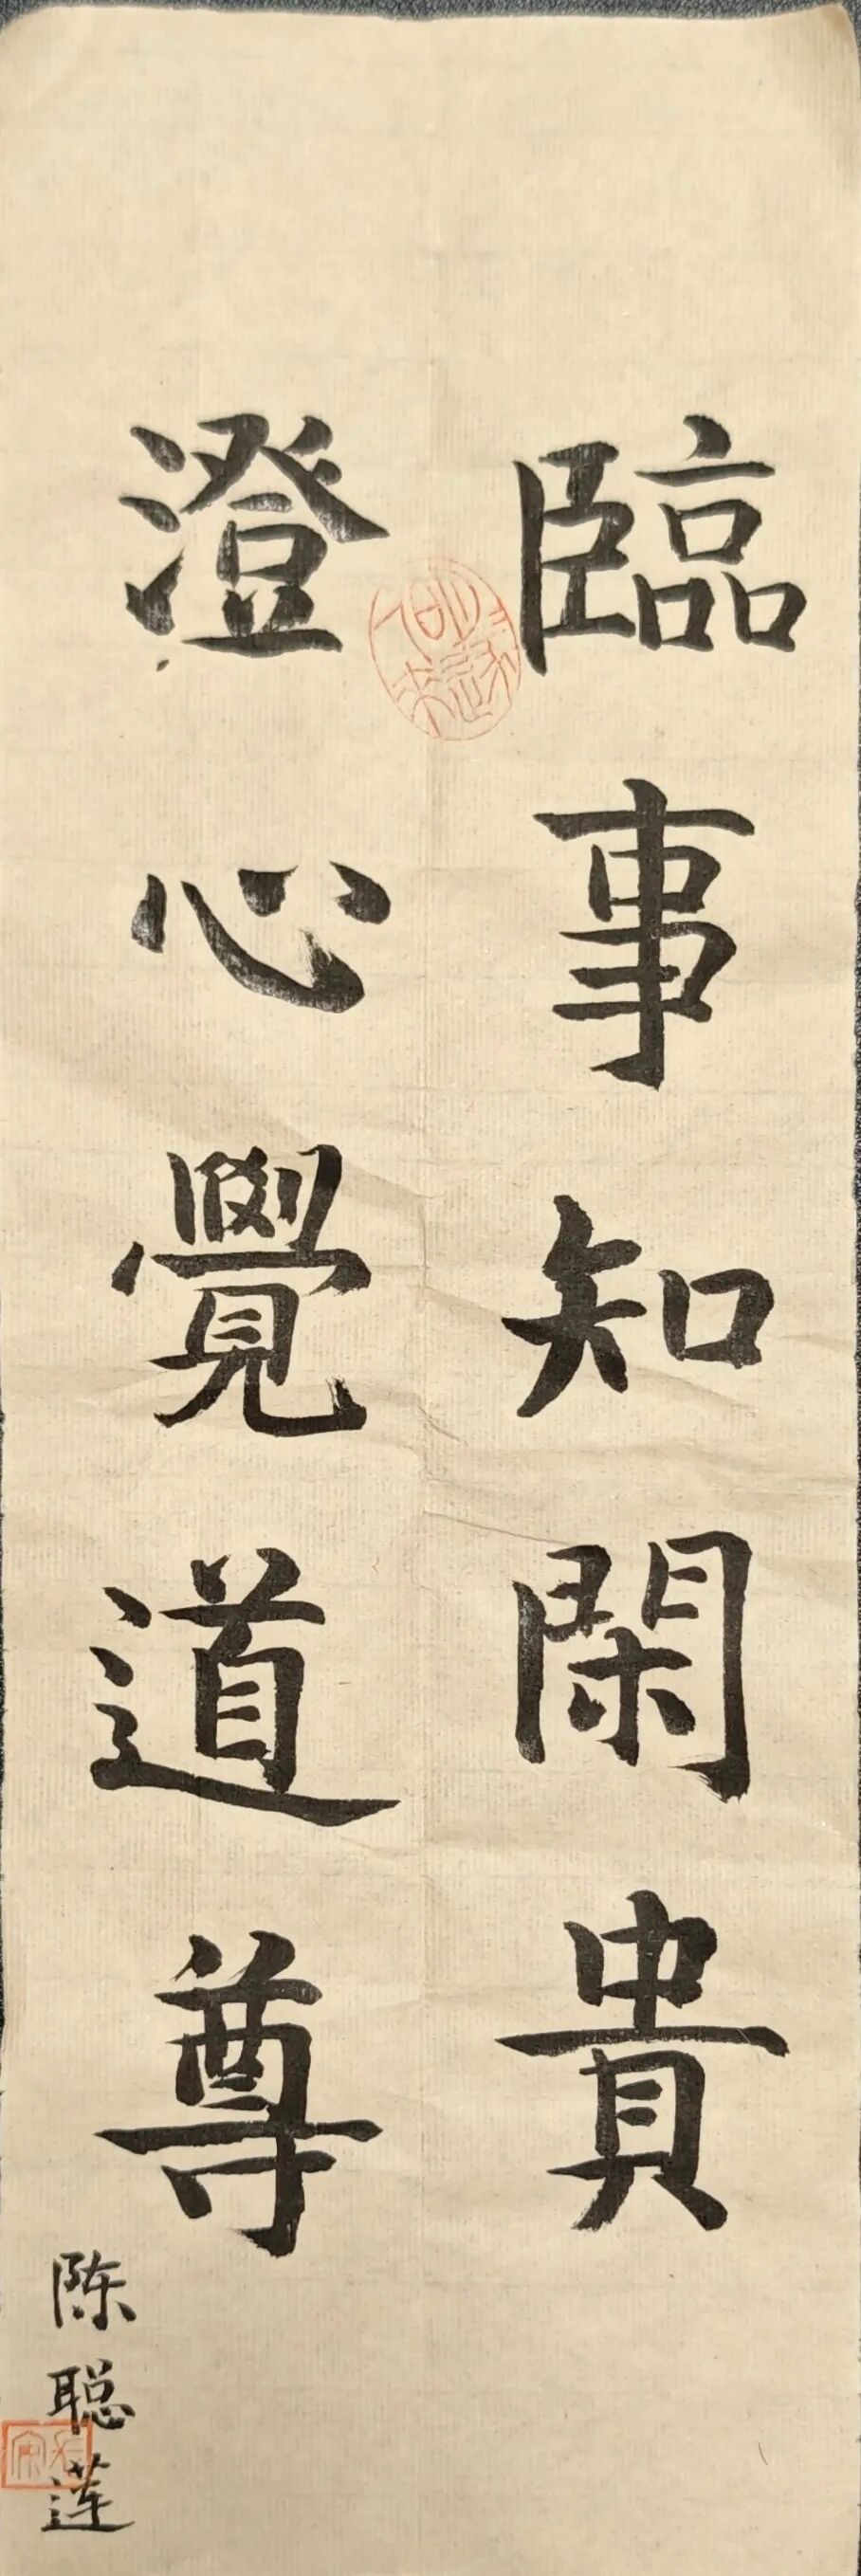 臨事知閑貴
澄心覺道尊
陈聪莲